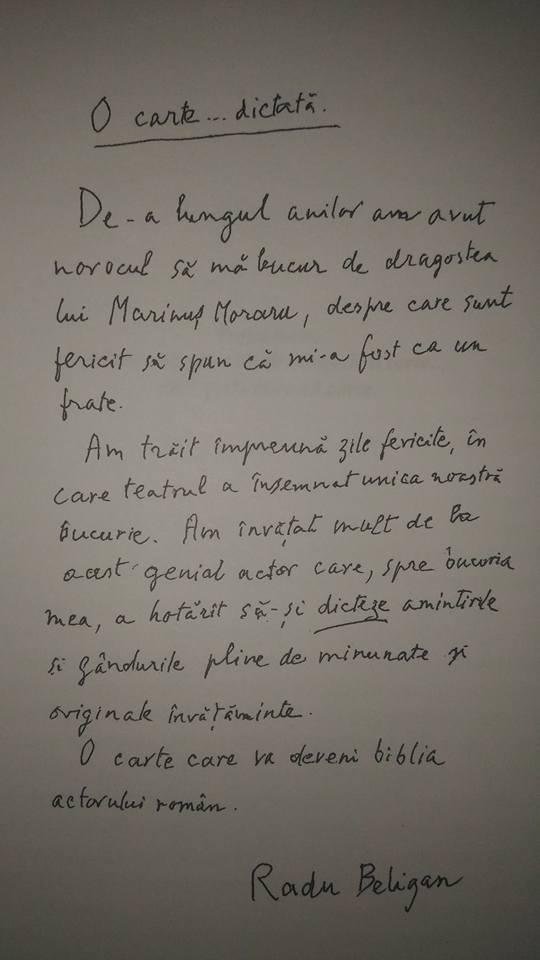 O carte... dictată.
De-a lungul anilor am avut
norocul să mă bucur de dragostea
lui Marinuș Moraru, despre care sunt
fericit să spun că mi-a fost ca un
frate.
Am trăit împreună zile fericite, în
care teatrul a însemnat unica noastră
bucurie. Am învățat mult de la
acest genial actor care, spre bucuria
mea, a hotărît să-și dicteze amintirile
și gândurile pline de minunate și
originale învățăminte.
O carte care va deveni biblia
actorului român.
Radu Beligan